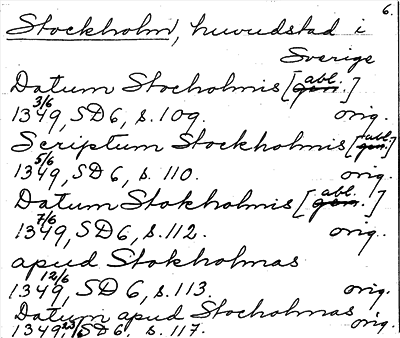 6.
Stockholm, huvudstad i
Sverige
Datum Stocholmis [gen. abl.]
1349 3/6, SD 6, s. 109. orig.
Scriptum Stockholmis [gen. abl.]
1349 5/6, SD 6, s. 110. orig.
Datum Stokholmis [gen. abl.]
1349 7/6, SD 6, s. 112. orig.
apud Stokholmas
1349 12/6, SD 6, s. 113. orig.
Datum apud Stocholmas
1349, 23/6 SD 6, s. 117. orig.